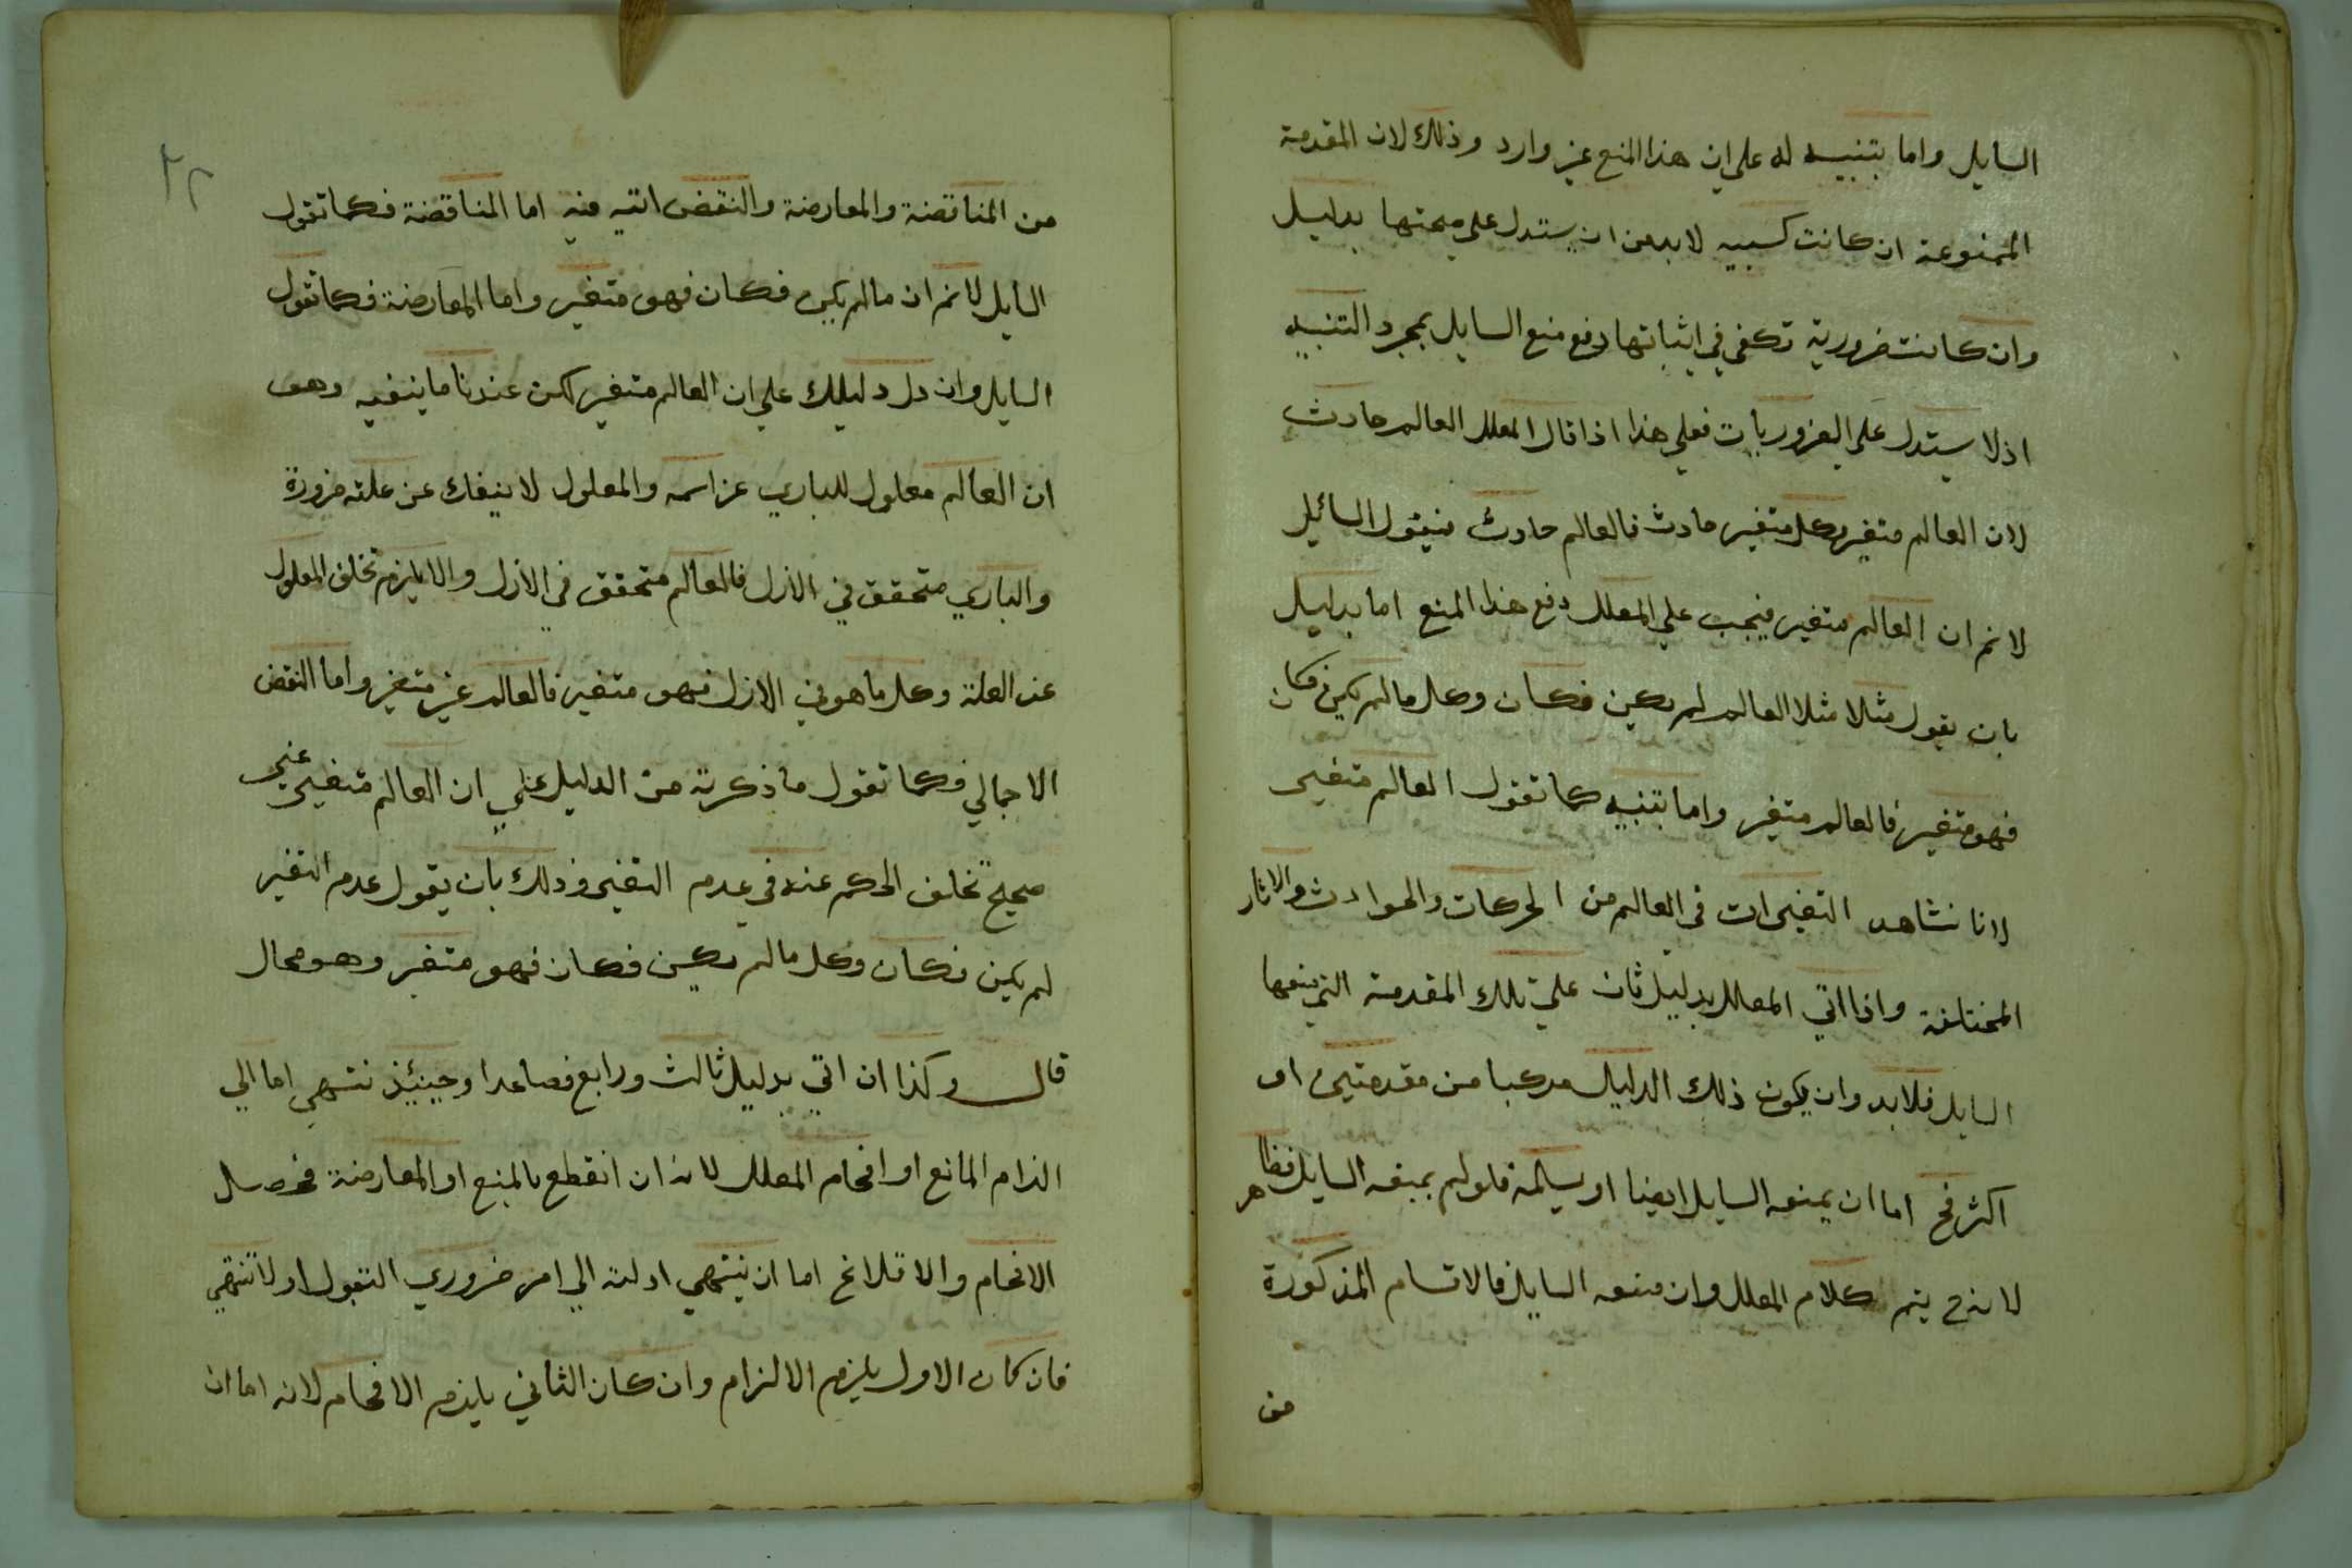 السايل واما بتنبيه له على ان هذا المنع غير وارد وذلك لان المقدمة
الممنوعة ان كانت كسبيه لا بد من ان يستدل على صحتها بدليل
وان كانت ضرورية تكفي في اثباتها دفع منع السايل بمجرد التنبيه
اذ لا يستدل على الضروريات فعلي هذا اذا قال المعلل العالم حادث
لان العالم متغير وكل متغير حادث فالعالم حادث فيقول السائل
لا نم ان العالم متغير فيجب علي المعلل دفع هذا المنع اما بدليل
بان يقول مثلا مثلا العالم لم يكن فكان وكل مالم يكن فكان
فهو متغير فالعالم متغير واما بتنبيه كما تقول العالم متغير
لانا نشاهد التغيرات في العالم من الحركات والحوادث والاثار
المختلفة واذا اتي المعلل بدليل ثان علي تلك المقدمة التي منعها
السايل فلابد وان يكون ذلك الدليل مركبا من مقدمتين او
اكثر فح اما ان يمنعه السايل ايضا او يسلمه فلو لم يمنعه السايل فظاهر
لانه ح يتم كلام المعلل وان منعه السايل فالاقسام المذكورة
من
٢٢
من المناقضة والمعارضة والنقض اتيه فيه اما المناقضة فكما تقول
السايل لا نم ان مالم يكن فكان فهو متغير واما المعارضة فكما تقول
السايل وان دل دليلك علي ان العالم متغير لكن عندنا ما ينفيه وهو
ان العالم معلول للباري عز اسمه والمعلول لا ينفك عن علته ضرورة
والباري متحقق في الازل فالعالم متحقق في الازل والا يلزم تخلف المعلول
عن العلة وكل ما هو في الازل فهو متغير فالعالم غير متغير واما النقض
الاجمالي فكما تقول ما ذكرته من الدليل علي ان العالم متغير غير
صحيح تخلف الحكم عنه في عدم التغير وذلك بان يقول عدم التغير
لم يكن فكان وكل مالم يكن فكان فهو متغير وهو محال
قال وكذا ان اتي بدليل ثالث ورابع فصاعدا وحينئذ تنتهي اما الي
الزام المانع او افحام المعلل لانه ان انقطع بالمنع او المعارضة فحصل
الافحام والا فلا يخ اما ان ينتهي ادلته الي امر ضروري القبول او لا تنتهي
فان كان الاول يلزم الالزام وان كان الثاني يلزم الافحام لانه اما ان